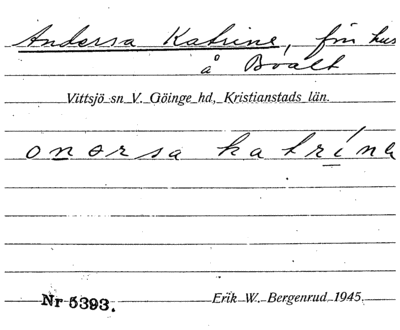 Andersa Katrine, fin hus
å Boalt
Vittsjö sn V. Göinge hd, Kristianstads län.
onørsa katrína
Nr 5393.
Erik W. Bergenrud 1945.